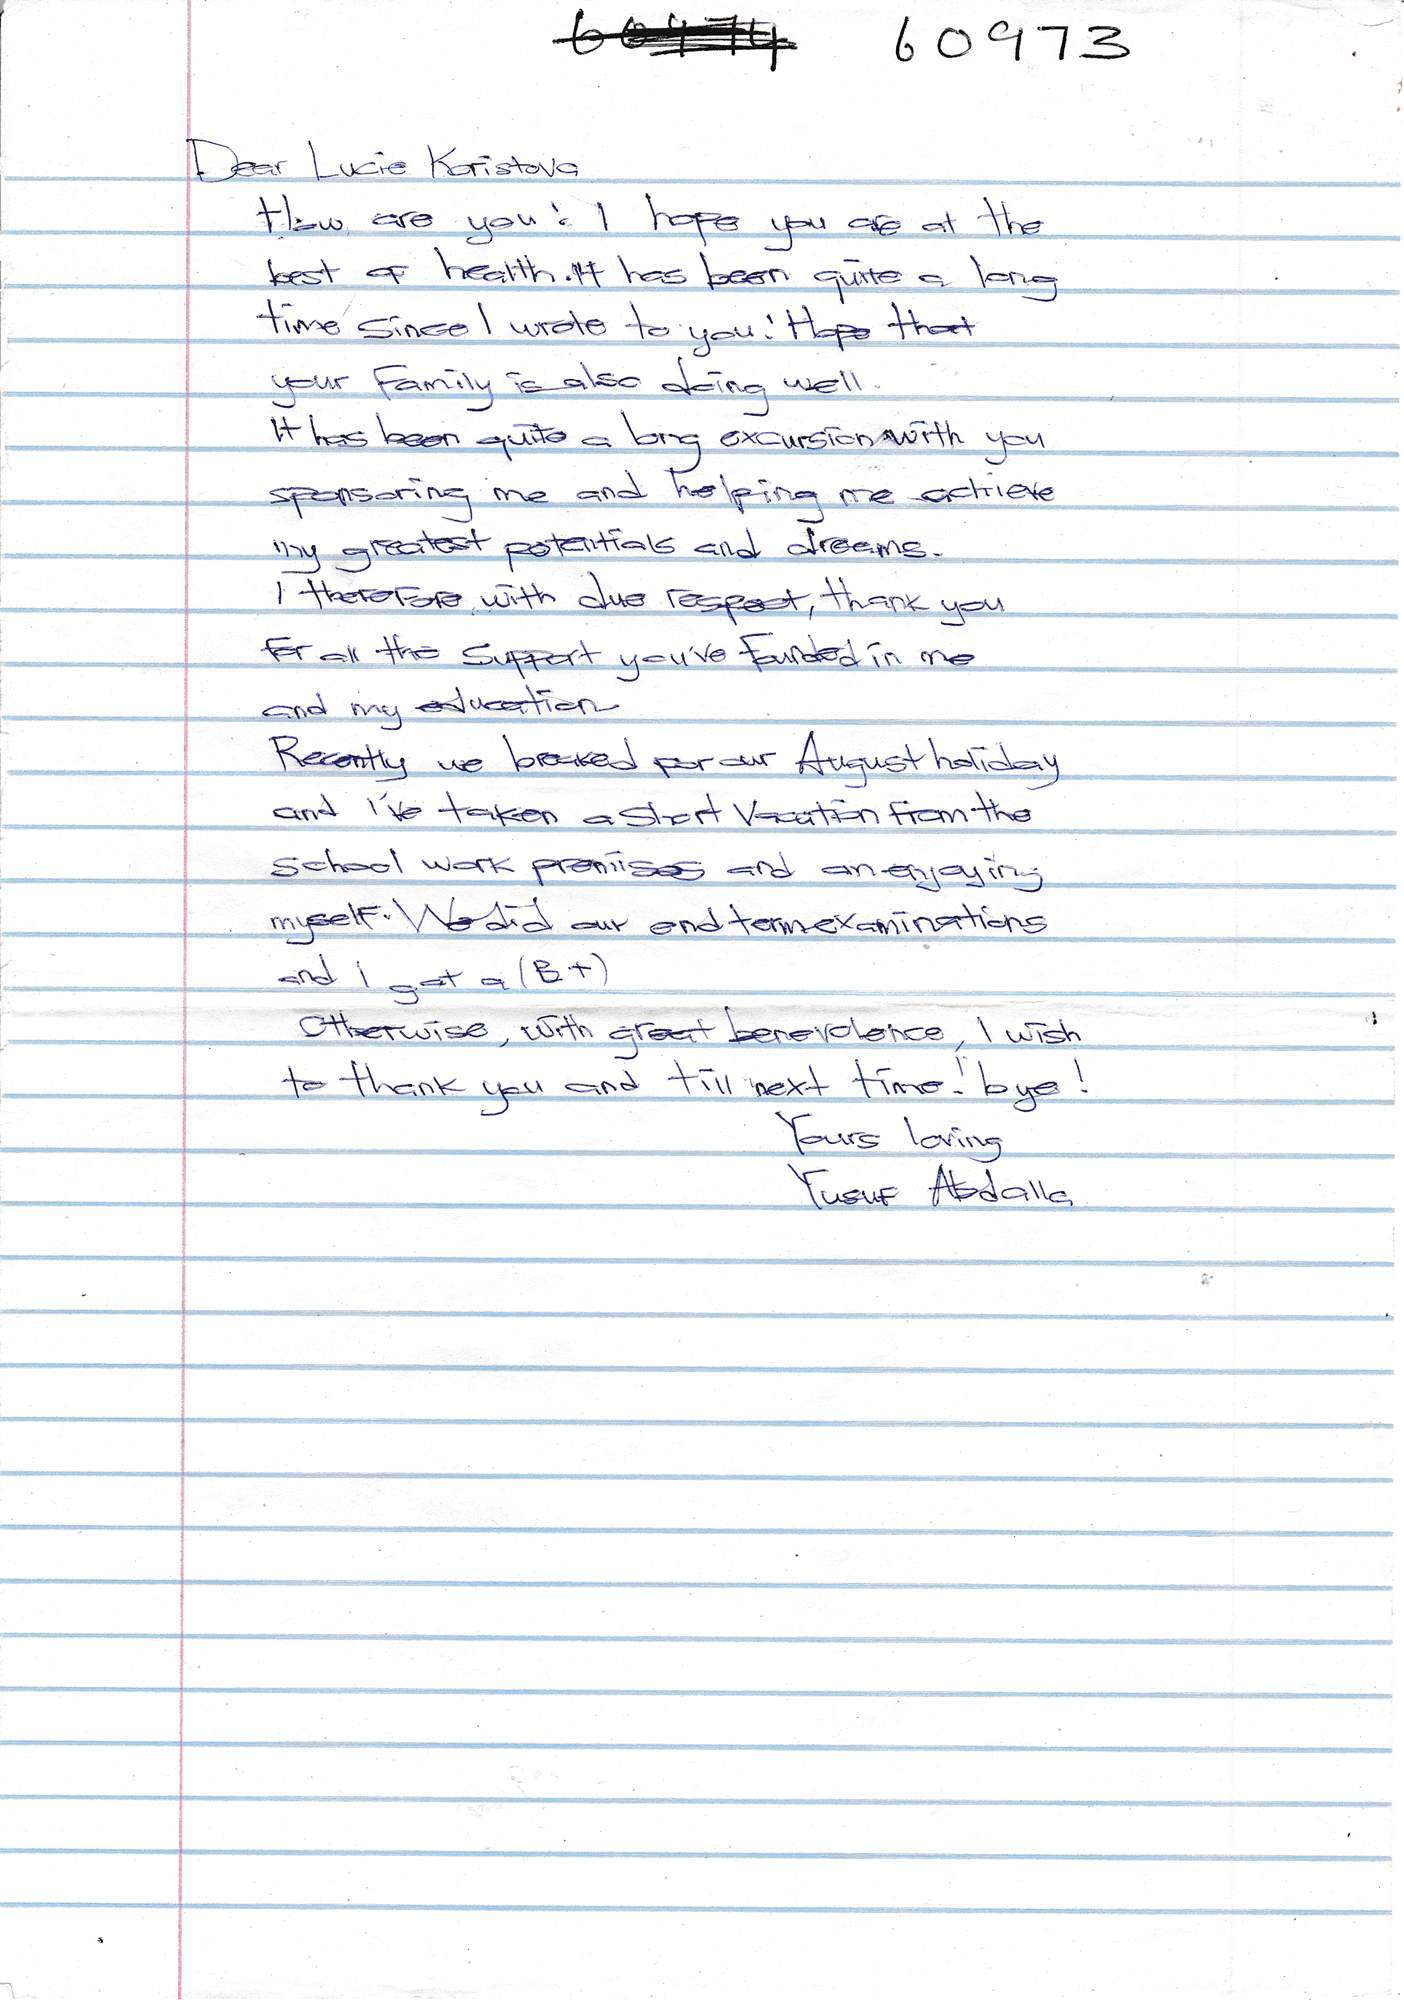 60974 60973
Dear Lucie Koristova
How are you! I hope you are at the
best of health. It has been quite a long
time since I wrote to you! Hope that
your family is also doing well.
It has been quite a long excursion with you
sponsoring me and helping me achieve
my greatest potentials and dreams.
I therefore, with due respect, thank you
for all the support you've founded in me
and my education
Recently we breaked for our August holiday
and I've taken a short vacation from the
school work premises and an enjoying
myself. We did our end term examinations
and I got a (B+)
Otherwise, with great benevolence, I wish
to thank you and till next time! bye!
Yours loving
Yusuf Abdalla